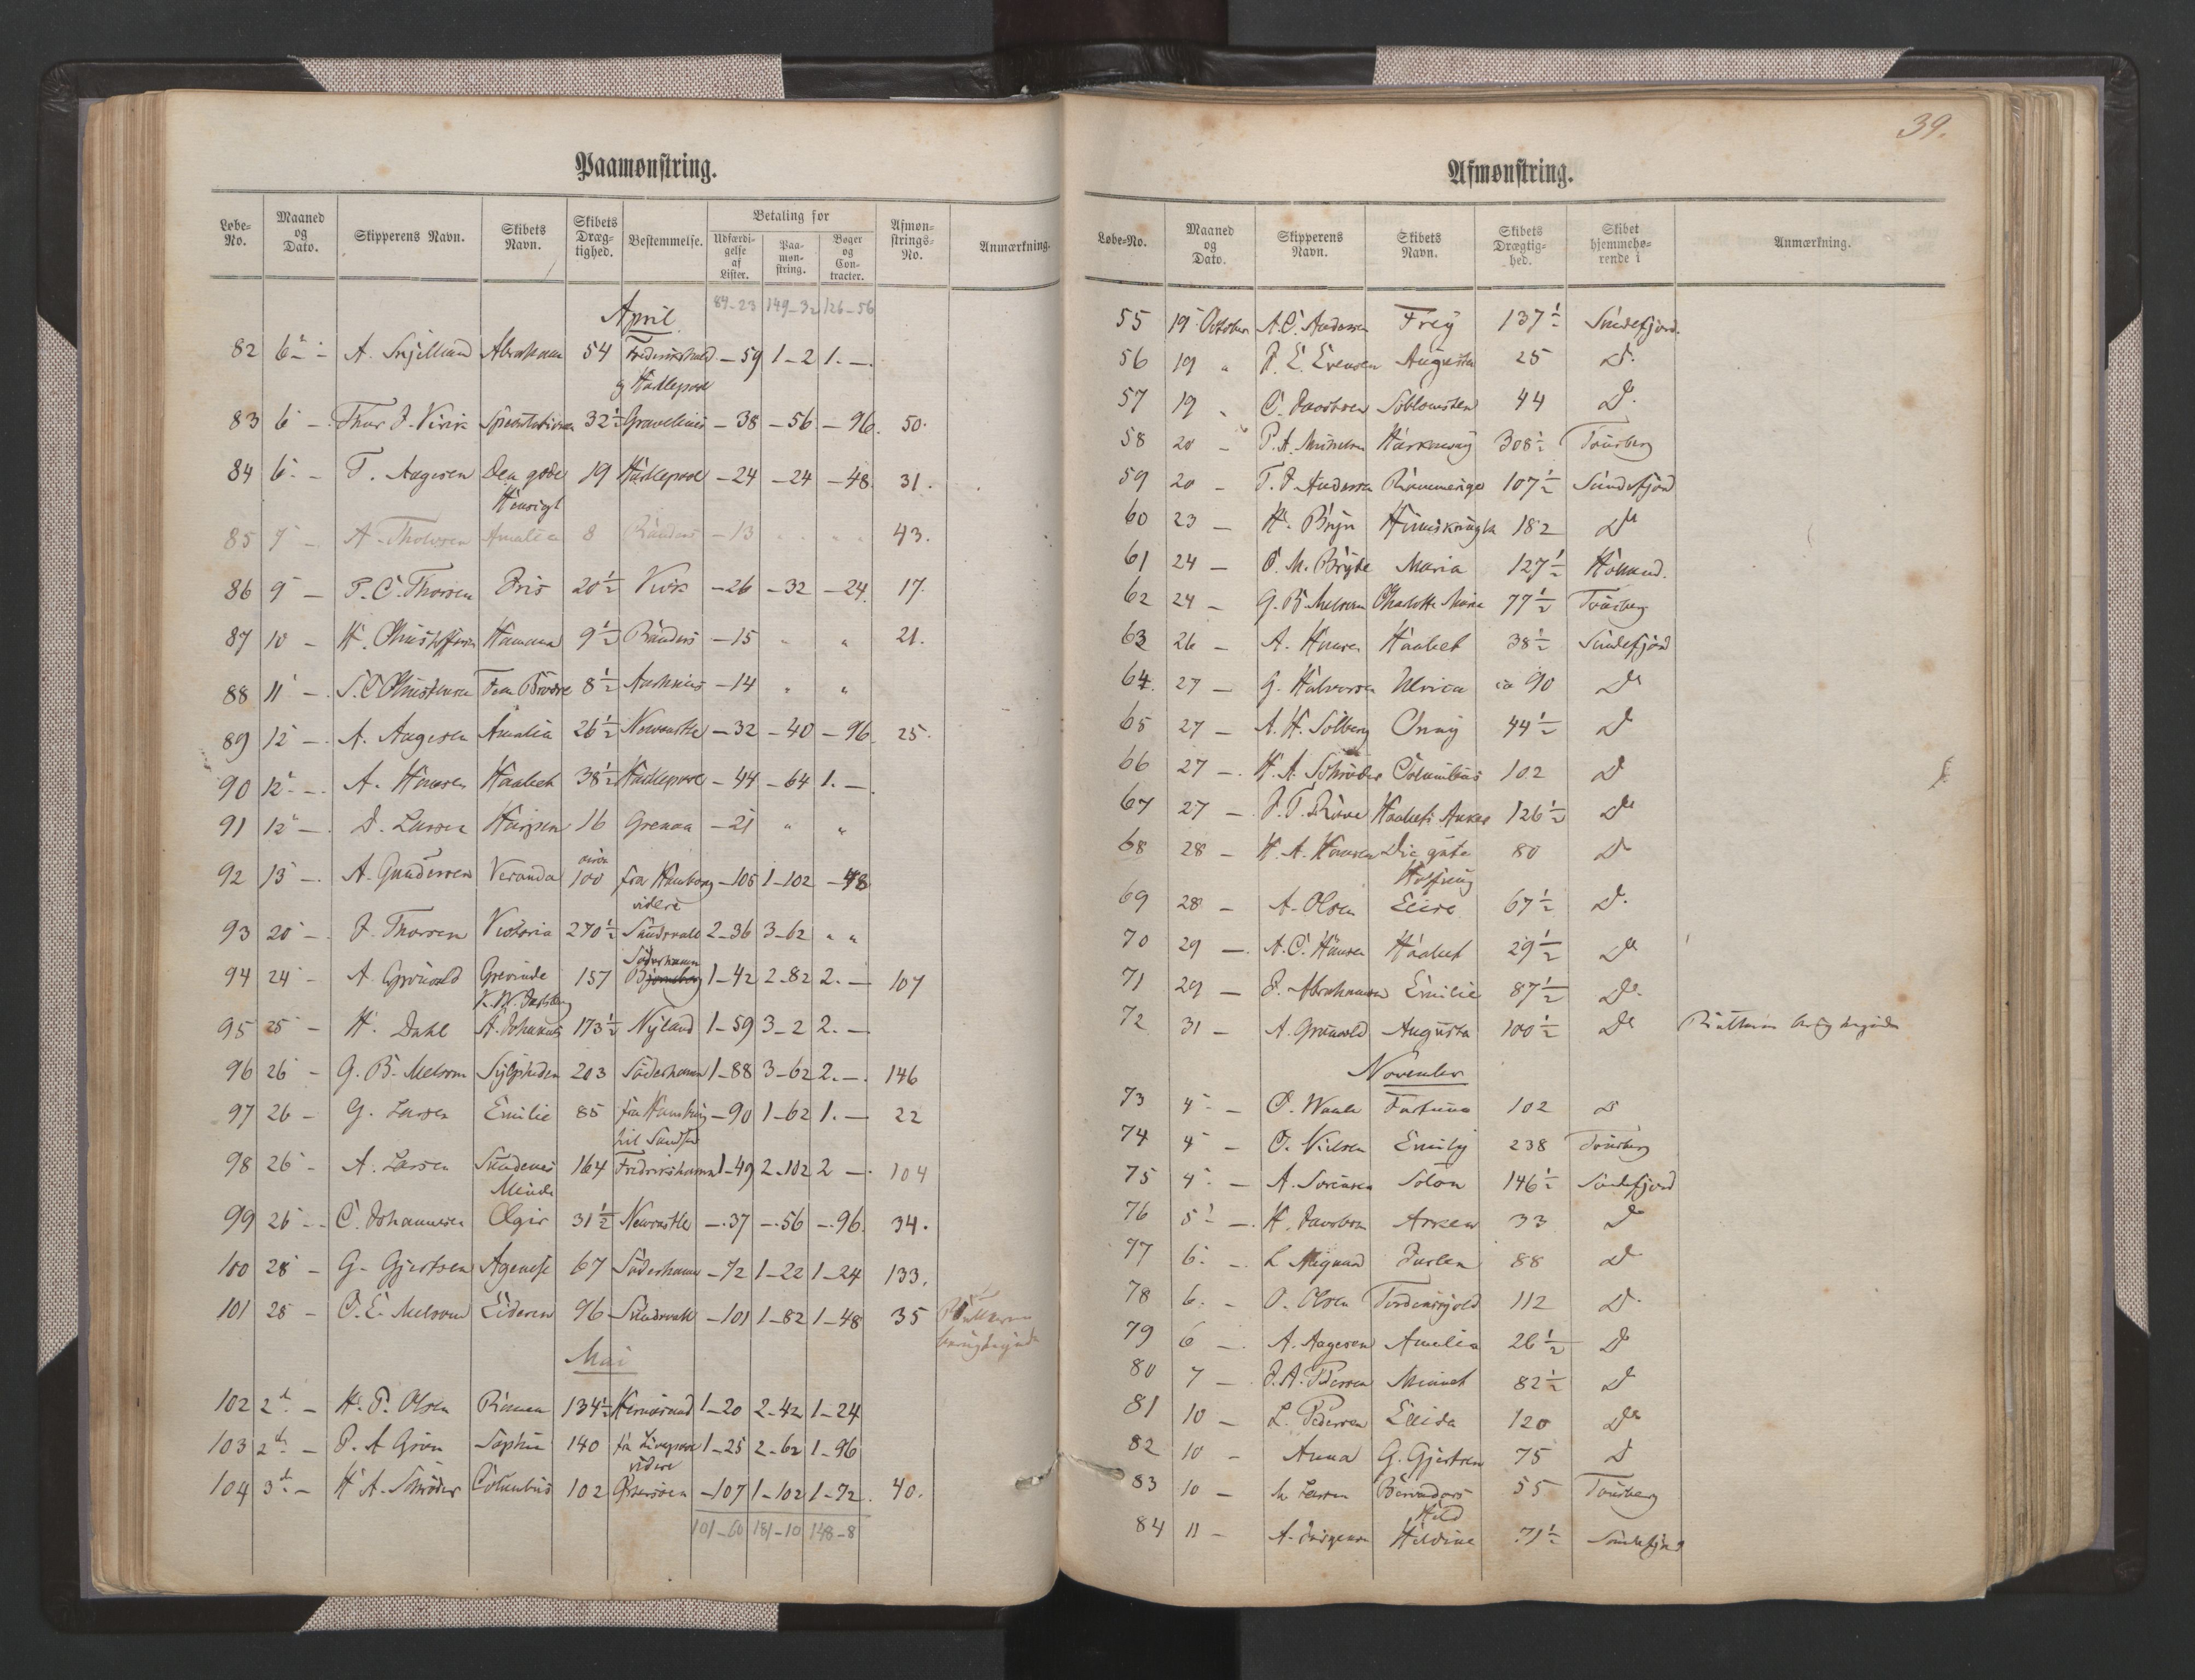 Paamønstring.
Løbe-No. | Maaned og Dato. | Skipperens Navn. | Skibets Navn. | Skibets Dræg-tighed. | Bestemmelse. | Betaling for | Udfærdi-gelse af Lister. | Paa-møn-string. | Bøger og Con-tracter. | Afmøn-strings-No. | Anmærkning.
April 84-23 149-32 126-56
82 6 - A. Abraham 54 Frederikshald - 59 1-2 1. -
og Hartlepool
83 6 - Thor J. Virik Speculation 32½ Gravelines - 38 - 56 - 96. 50.
84 6 - T. Aagesen Den gode 19 Hartlepool - 24 - 24 - 48 31.
Hensigt
85 7 - A. Amalia 8 Randers - 13 " " 43.
86 9 - P. C. Thorsen Iris 20½ - 26 - 32 - 24 17.
87 10 - H. Christoffersen 9½ Randers - 15 " " 21.
88 11 - S. C. Christensen Fem Brødre 8½ Aarhuus - 14 " "
89 12 - A. Aagesen Amalia 26½ Newcastle - 32 - 40 - 96. 25.
90 12 - A. Hansen Haabet 38½ Hartlepool - 44 - 64 1. -
91 12 - D. Larsen 16 Grenaa - 21 " "
92 13 - A. Gundersen Veranda circa 100 fra Hamborg - 105 1-102 - 48
videre
93 20 - J. Thorsen Victoria 270½ Sundsvall 2-36 3-62 " "
94 24 - A. Grønvold Grevinde 157 Söderhamn 1-42 2-82 2. - 107
95 25 - H. Dahl A. Johannes 173½ Nyland 1-59 3-2 2. -
96 26 - G. B. Melsom Sylphiden 203 Söderhamn 1-88 3-62 2. - 146
97 26 - G. Larsen Emilie 85 fra Hamborg - 90 1-62 1. - 22
98 26 - A. Larsen 164 Fredrikshamn 1-49 2-102 2 - 104
Minde
99 26 - C. Johannesen Ægir 31½ Newcastle - 37 - 56 - 96. 34.
100 28 - G. Gjertsen Agenese 67 Söderhamn - 72 1-22 1-24 133.
101 28 - C. E. Melsom Eideren 96 Sundsvall - 101 1-82 1-48 35
Mai
102 2 - H. P. Olsen 134½ Hernösand 1-20 2-42 1-24
103 2 - P. A. Grøn Sophie 140 fra Liverpool 1-25 2-62 1-96
videre
104 3 - H A. Schrøder Columbus 102 - 107 1-102 1-72. 40.
101-60 181-10 148-8

39.
Afmønstring.
Løbe-No. | Maaned og Dato. | Skipperens Navn. | Skibets Navn. | Skibets Drægtig-hed. | Skibet hjemmehø-rende i | Anmærkning.
55 19 October A. C. Andersen Frey 137½ Sandefjord.
56 19 " P. E. Evensen Augusta 25 Do
57 19 " C. Jacobsen Søblomsten 44 Do
58 20 - P. A. 308½ Tønsberg
59 20 - T. J. Andersen 107½ Sandefjord
60 23 - H. Bryn Heimskringla 182 Do
61 24 - O. M. Bryde Maria 127½
62 24 - G. B. Melsom Charlotte Maria 77½ Tønsberg
63 26 - A. Hansen Haabet 38½ Sandefjord
64. 27 - G. Halvorsen Ulrica ca 90 Do
65 27 - A. H. Solberg Onny 44½ Do
66 27 - H. A. Schrøder Columbus 102 Do
67 27 - J. T. Røver Haabets Anker 126½ Do
68 28 - H. A. Hansen Die gute 80 Do
Hoffnung
69 28 - A. Olsen Elise 67½ Do
70 29 - A. C. Hansen Haabet 29½ Do
71 29 - J. Abrahamsen Emilie 87½ Do
72 31 - A. Grønvold Augusta 100½ Do
November
73 4 - O. Fortuna 102 Do
74 4 - O. Nielsen Emily 238 Tønsberg
75 4 - A. Sørensen Solon 146½ Sandefjord
76 5 - H. Jacobsen Arken 33 Do
77 6 - L. Jarlen 88 Do
78 6 - O. Olsen Tordenskjold 112 Do
79 6 - A. Aagesen Amalia 26½ Do
80 7 - J. A. Pedersen Minnet 82½ Do
81 10 - L. Pedersen Ellida 120 Do
82 10 - Anna G. Gjertsen 75 Do
83 10 - M. Larsen 55 Tønsberg
Held
84 11 - A. Jørgensen Heldine 71½ Sandefjord